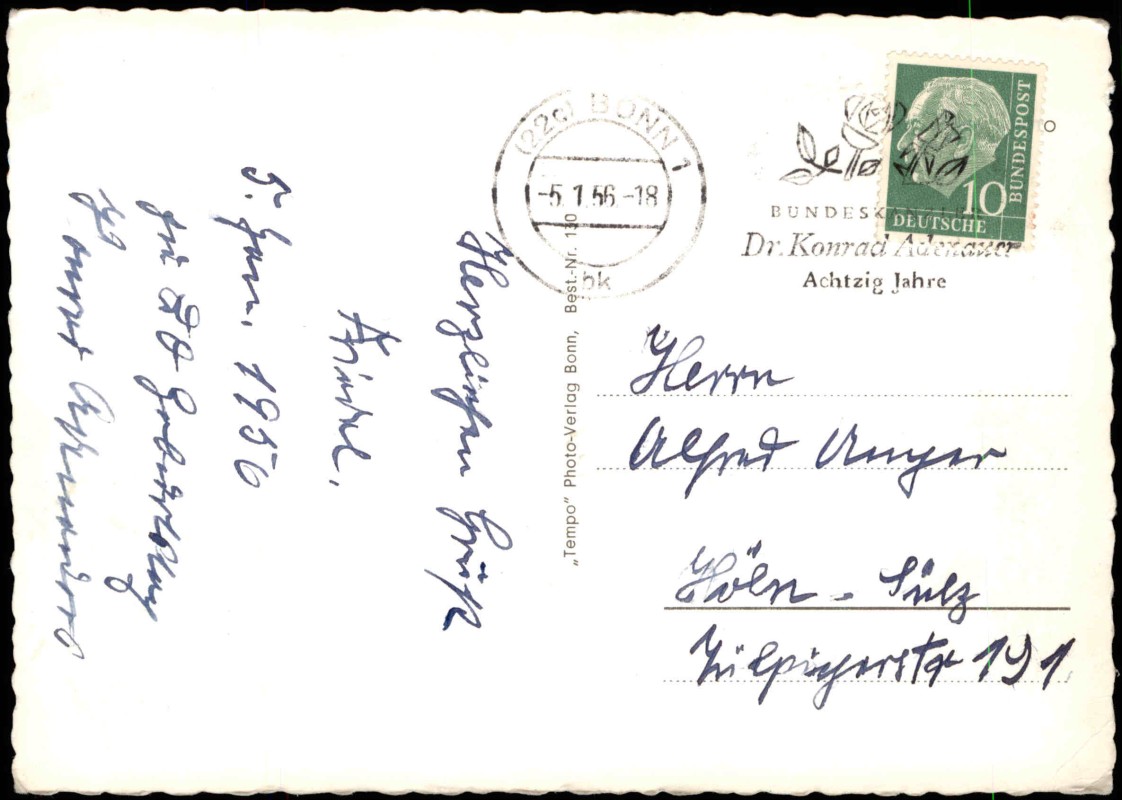 5. Jan. 1956
zu
Geburtstag
Herzlichen Grüße
(22c) BONN 1
-5.1.56.-18
bk
BUNDESKANZLER
Dr. Konrad Adenauer
Achtzig Jahre
10
DEUTSCHE
BUNDESPOST
„Tempo“ Photo-Verlag Bonn, Best.-Nr. 130
Herrn
Alfred Unger
Köln - Sülz
Zülpicherstr 191